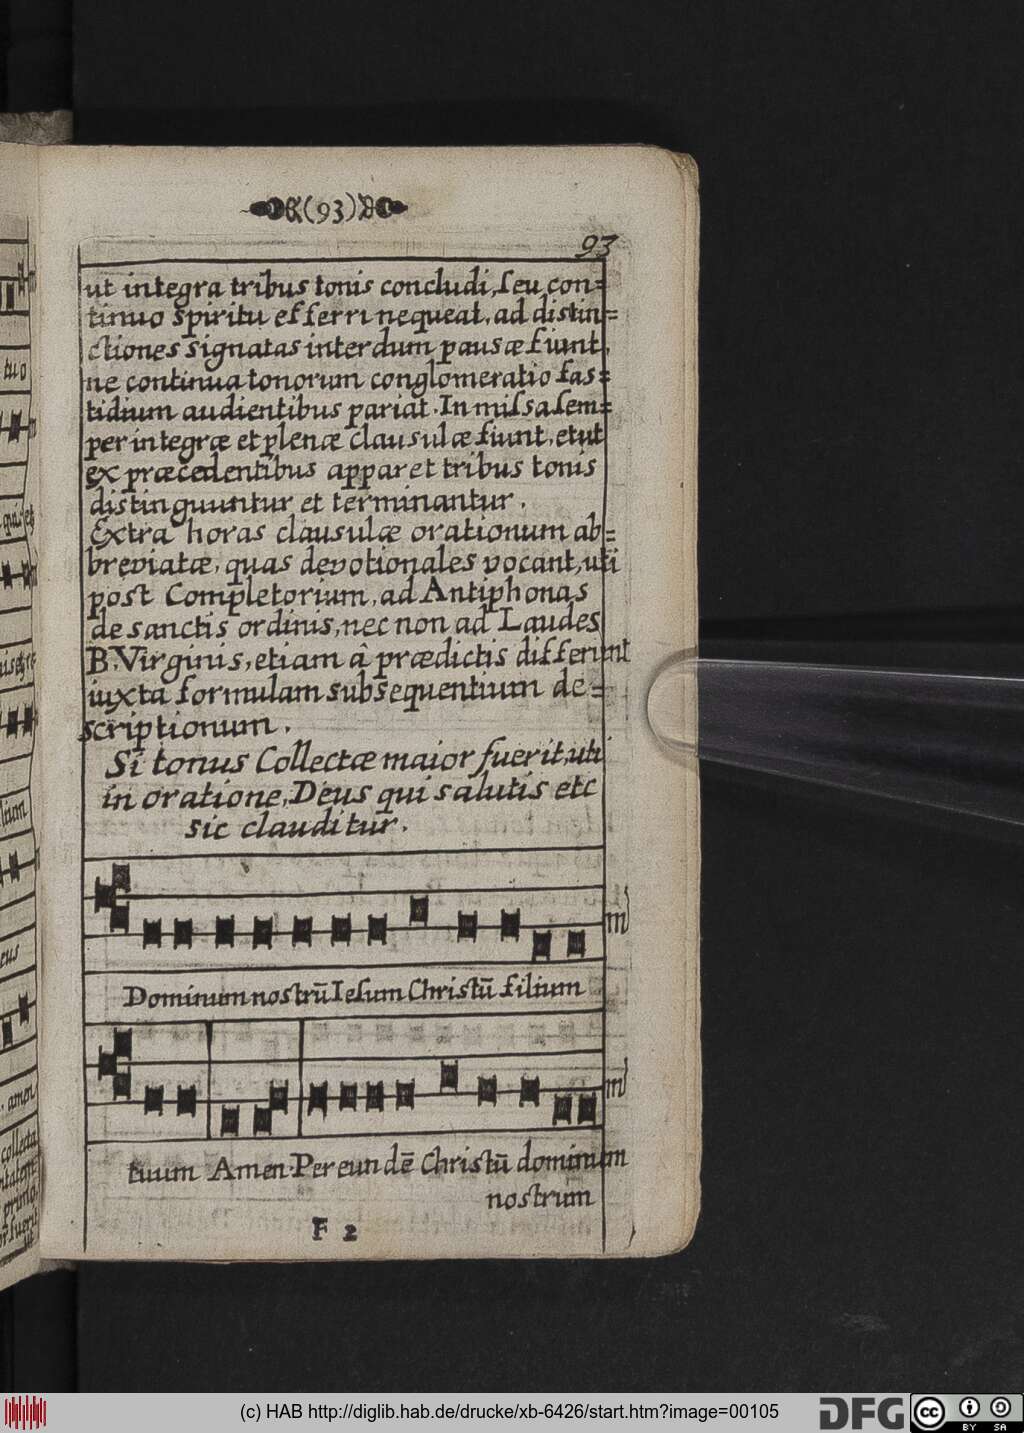 (93)
93
ut integra tribus tonis concludi, seu con=
tinuo spiritu efferri nequeat, ad distin=
ctiones signatas interdum pausæ fiunt,
ne continua tonorum conglomeratio fas=
tidium audientibus pariat. In missa sem=
per integræ et plenæ clausulæ fiunt, et ut
ex præcedentibus apparet tribus tonis
distinguuntur et terminantur.
Extra horas clausulæ orationum ab=
breviatæ, quas devotionales vocant, uti
post Completorium, ad Antiphonas
de sanctis ordinis, nec non ad Laudes
B. Virginis, etiam â prædictis differunt
iuxta formulam subsequentium de=
scriptionum.
Si tonus Collectæ maior fuerit, uti
in oratione, Deus qui salutis etc
sic clauditur.
Dominum nostrũ Iesum Christũ filium
tuum Amen. Per eundẽ Christũ dominum
nostrum
F 2
tuo
eus
amen
collecta
primo
(c) HAB http://diglib.hab.de/drucke/xb-6426/start.htm?image=00105
DFG
cc
BY SA